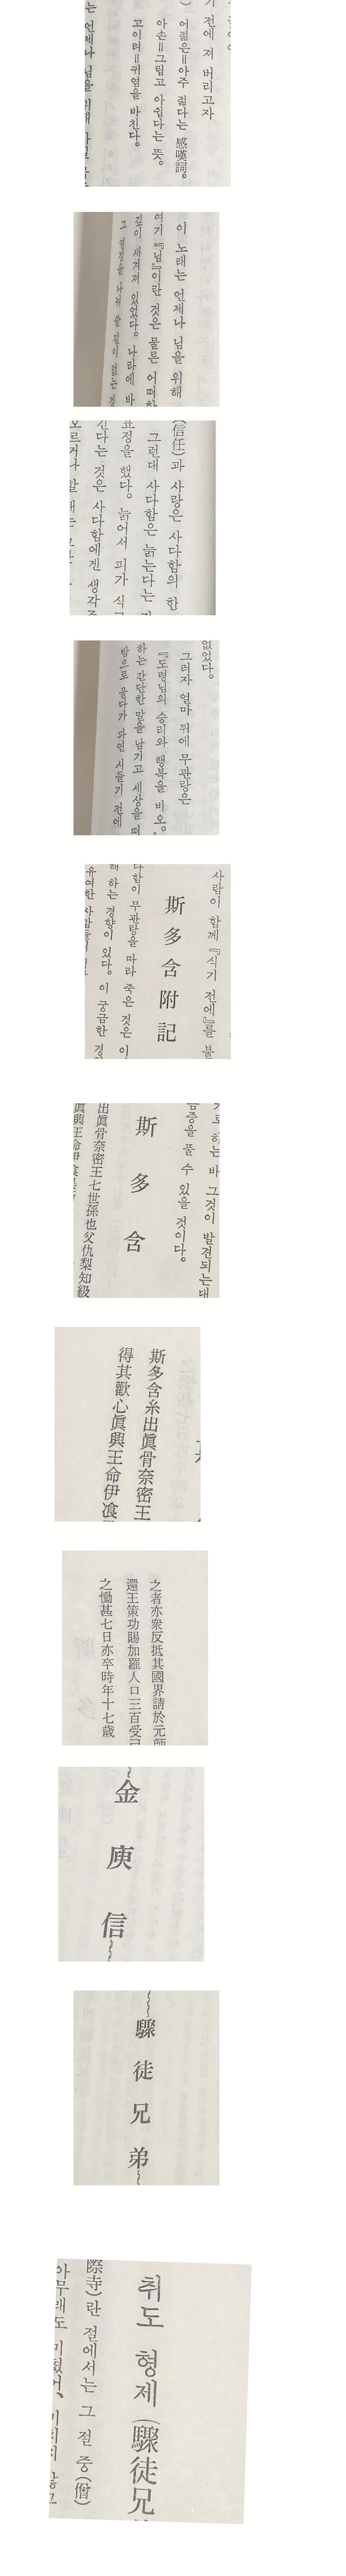 기 전에 져 버리고자
어젊은=아주 젊다는 感嘆詞。
아손=그립고 아쉽다는 뜻。
고이려=귀염을 바친다。
는 언제나 님을 위해
이 노래는 언제나 님을 위해
여기 『님』이란 것은 물론 어떠한
깊이 새겨져 있었다。 나라에 바
그 열정을 나눠 쓸 길이 없는 것
(信任)과 사랑은 사다함의 한
그런대 사다함은 늙는다는
표정을 했다。 늙어서 피가 식
진다는 것은 사다함에겐 생각
모르거나 할 때는
없었다。
그러자 얼마 뒤에 무관랑은
『도령님의 승리와 행복을 비오。
하는 간단한 말을 남기고 세상을 떠
밤으로 울다가 과연 시들기 전에
사람이 함께 『식기 전에』를 불
斯多含附記
다함이 무관랑을 따라 죽은 것은 이
해 하는 경향이 있다。 이 궁금한 경
유여한 사람들
로 하는 바 그것이 발견되는대
금증을 풀 수 있을 것이다。
斯多含
出眞骨奈密王七世孫也父仇梨知級
眞興王命伊
斯多含系出眞骨奈密王
得其歡心眞興王命伊飡
之者亦衆反抵其國界請於元帥
還王策功賜加羅人口三百受已
之慟甚七日亦卒時年十七歲
金庾信
驟徒兄弟
취도 형제(驟徒兄
際寺)란 절에서는 그 절 중(僧)
아무래도 미쳤어、 미치지 않고